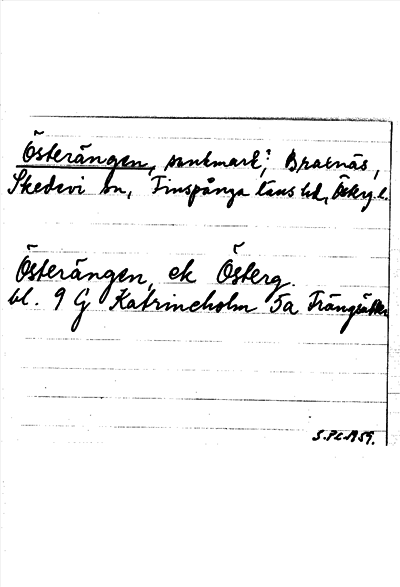 Österängen, sankmark; Braxnäs,
Skedevi sn, Finspånga läns hd, Östg l.
Österängen, ek Österg.
bl. 9 G Katrineholm 5a Trängsätter
S.PL.1959.